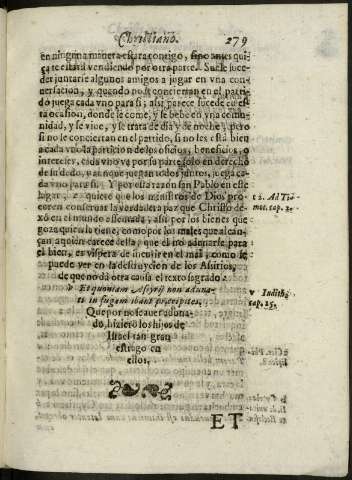 Christiano. 279
en ninguna manera estara contigo, sino antes qui-
ça te estará vendiendo por otra parte. Suele suce-
der juntarse algunos amigos a jugar en vna con-
uersacion, y quando no se conciertan en el parti-
do juega cada vno para si; assi parece sucede en es-
ta ocasion, donde se come, y se bebe en vna comu-
nidad, y se viue, y se trata de dia y de noche; pero
si no se conciertan en el partido, si no les està bien
a cada vno la particion de los oficios, beneficios, o
interes, cada vno va por su parte solo en derecho
de su dedo, y aunque juegan todos juntos, juega ca-
da vno para si. Y por esta razon san Pablo en este
lugar, quiere que los ministros de Dios pro-
curen conseruar la verdadera paz que Christo de-
xò en el mundo assi por los bienes que
goza quien la tiene, como por los males que alcan-
çan a quien carece della, que el no para
el bien, es vispera de en el mal, como se
puede ver en la destruycion de los Assirios,
de que no da otra causa el texto sagrado:
Et quoniam Assyrij non aduna-
ti in fugam ibant præcipites,
Que por no se auer aduna-
do, hizierō los hijos de
Israel tan gran
estrago en
ellos.
12. Ad Ti-
mot. cap. 2.
v Iudith.
cap. 15.
ET